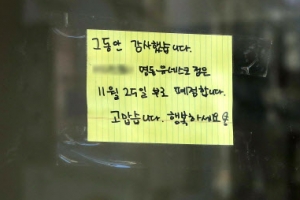 그동안 감사했습니다.
명동유네스코 점은
11월 25일 부로 폐점합니다.
고맙습니다. 행복하세요